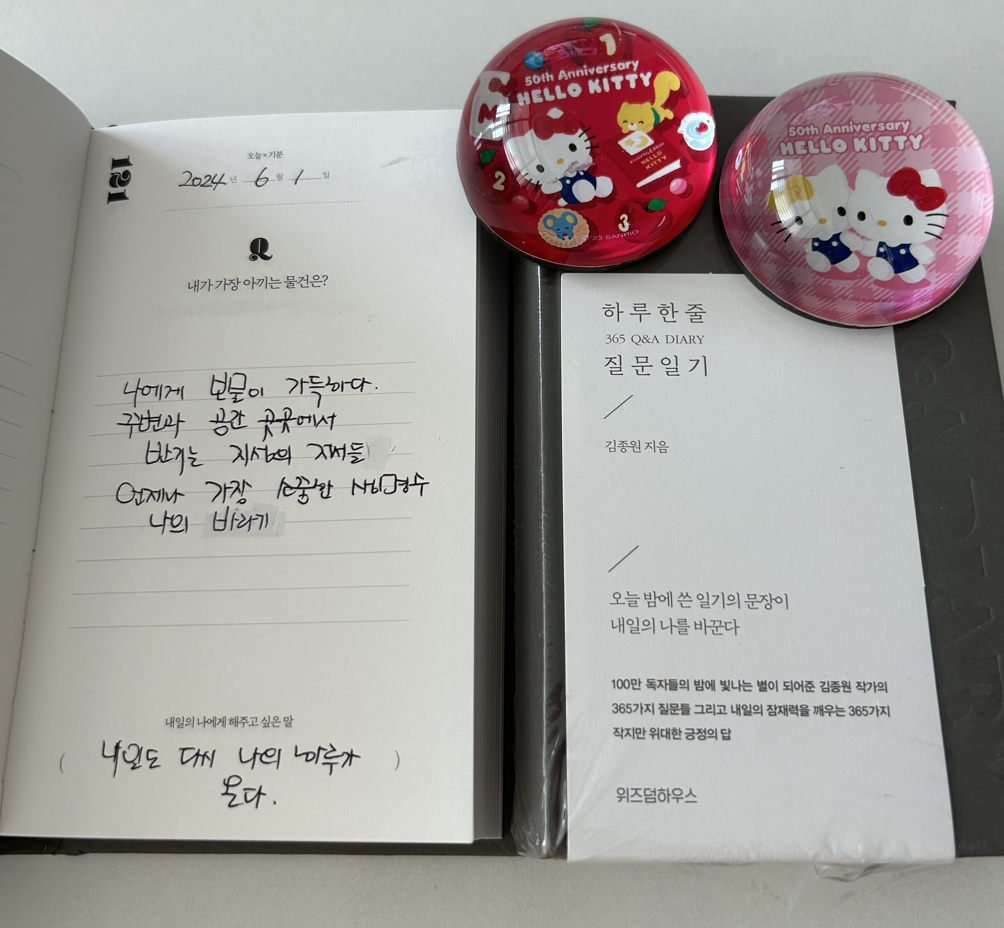 121
오늘×기분
2024년 6월 1일
Q
내가 가장 아끼는 물건은?
나에게 보물이 가득하다.
공간 곳곳에서
반기는 지성의 자서들
언제나 가장 소중한
나의 바라기
내일의 나에게 해주고 싶은 말
( 내일도 다시 나의 하루가 )
온다.
1
50th Anniversary
HELLO KITTY
HELLO
KITTY
2
3
SANRIO
50th Anniversary
HELLO KITTY
하루 한 줄
365 Q&A DIARY
질문 일기
김종원 지음
오늘 밤에 쓴 일기의 문장이
내일의 나를 바꾼다
100만 독자들의 밤에 빛나는 별이 되어준 김종원 작가의
365가지 질문들 그리고 내일의 잠재력을 깨우는 365가지
작지만 위대한 긍정의 답
위즈덤하우스